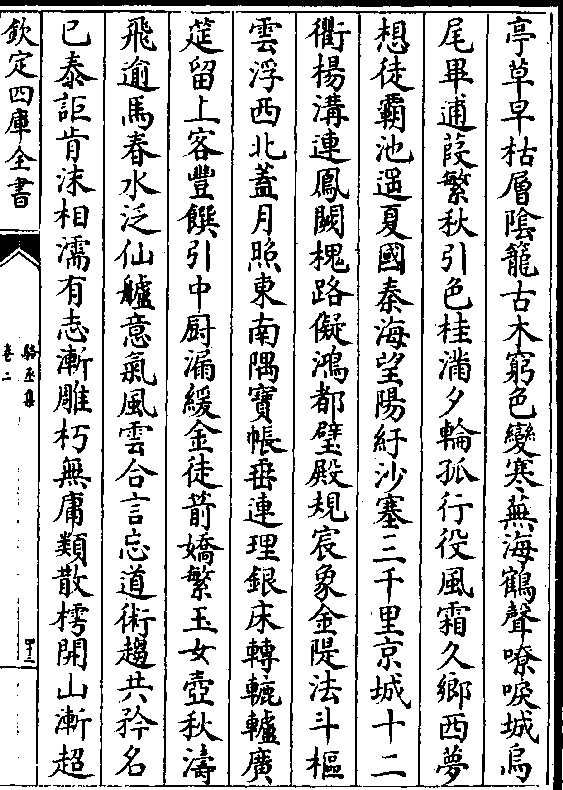 亭草早枯層陰籠古木窮色變寒蕪海鶴聲嘹唳城烏
尾畢逋葭繁秋引色桂滿夕輪孤行役風霜久鄉西夢
想徒霸池遥夏國秦海望陽紆沙塞三千里京城十二
衢楊溝連鳳闕槐路儗鴻都璧殿規宸象金隄法斗樞
雲浮西北蓋月照東南隅寶帳垂連理銀床轉轆轤廣
筵留上客豐饌引中厨漏緩金徒箭嬌繁玉女壺秋濤
飛逾馬春水泛仙艫意氣風雲合言忘道術趨共矜名
已泰詎肯沫相濡有志漸雕朽無庸類散樗開山漸超
欽定四庫全書
駱丞集
卷二
四十三